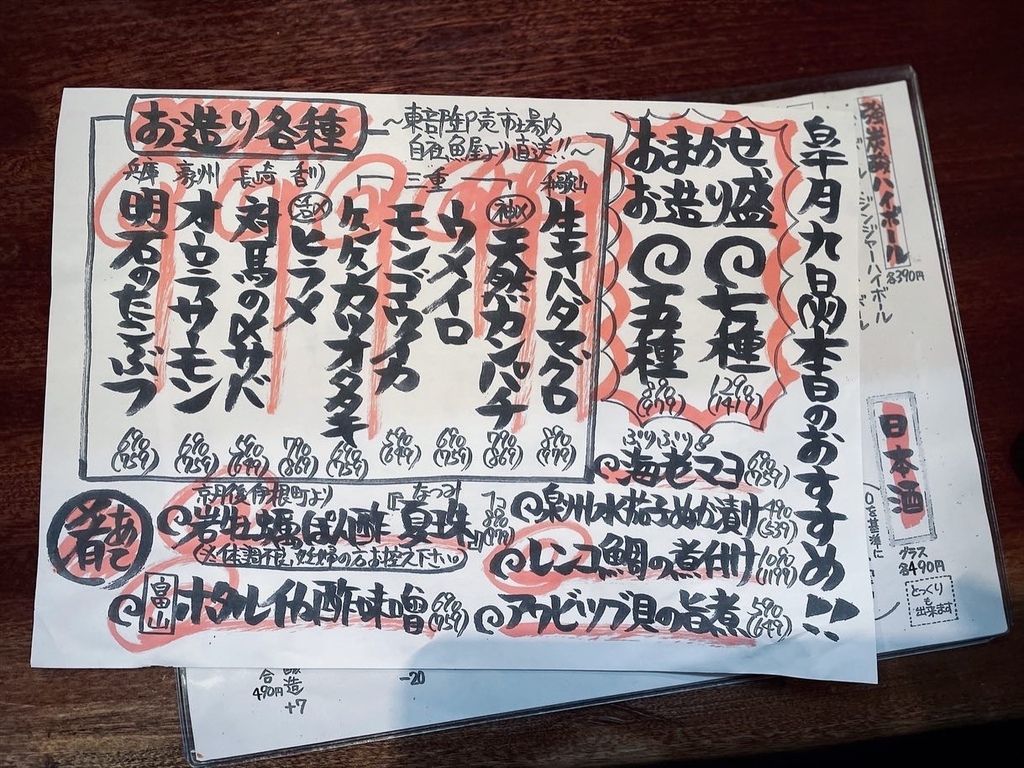 皐月九日(木)本日のおすすめ!!
おまかせ
お造り盛
七種 1290(1419)
五種
お造り各種
〜東部卸売市場内
自社魚屋より直送!!〜
和歌山
生キハダマグロ 890(979)
三重
神〆 天然カンパチ 790(869)
ウメイロ 690(759)
モンゴウイカ 590(649)
ケンケンカツオタタキ 690(759)
香川
活〆 ヒラメ 790(869)
長崎
対馬の〆サバ 590(649)
豪州
オーロラサーモン 690(759)
兵庫
明石のたこぶつ 690(759)
ぷりぷり
海老マヨ 690(759)
泉州水茄子ぬか漬け 490(539)
レンコ鯛の煮付け 1090(1199)
アワビツブ貝の旨煮 590(649)
あて
肴
京丹後伊根町より
岩牡蠣ぽん酢『夏珠』
なつみ
1コ
(※体調不良、妊婦の方お控え下さい。)
富山 ホタルイカ酢味噌 690(759)
強炭酸ハイボール
各390円
ジンジャーハイボール
日本酒
グラス
各490円
とっくり
も
出来ます
を基準に
醸造
+7
合
490円
-20